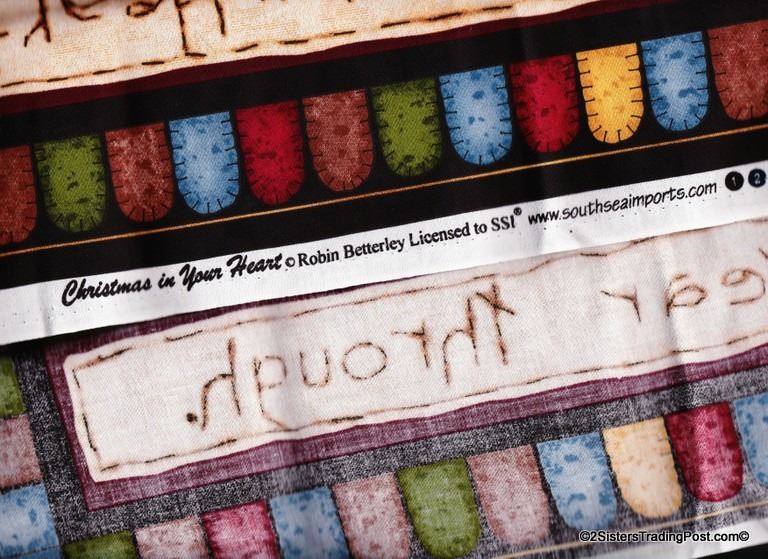 Christmas in Your Heart © Robin Betterley Licensed to SSI® www.southseaimports.com 1 2
year through.
©2SistersTradingPost.com©